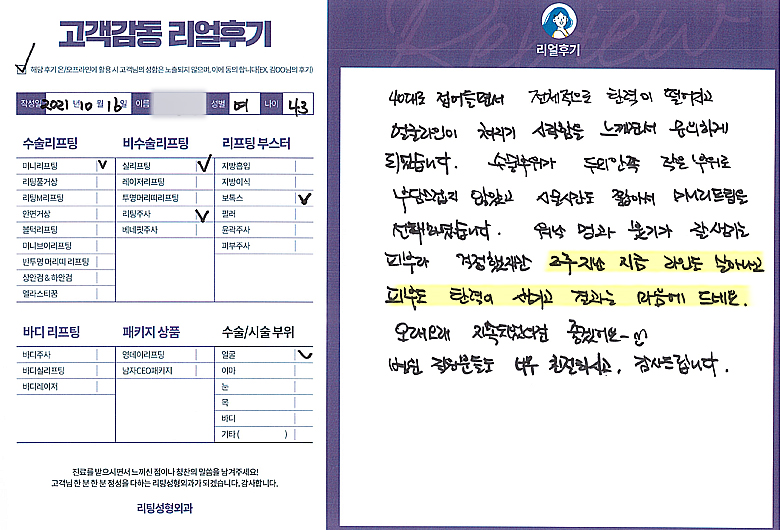 고객감동 리얼후기
해당 후기 온/오프라인에 활용 시 고객님의 성함은 노출되지 않으며, 이에 동의 합니다(EX. 김OO님의 후기)
작성일 2021 년 10 월 16 일 이름 성별 여 나이 43
수술리프팅 비수술리프팅 리프팅 부스터
미니리프팅 실리프팅 지방흡입
리팅풀거상 레이저리프팅 지방이식
리팅M리프팅 투명머리띠리프팅 보톡스
안면거상 리팅주사 필러
볼턱리프팅 베네핏주사 윤곽주사
미니브이리프팅 피부주사
반투명 머리띠 리프팅
상안검 & 하안검
엘라스티꿈
바디 리프팅 패키지 상품 수술/시술 부위
바디주사 영데이리프팅 얼굴
바디실리프팅 남자CEO패키지 이마
바디레이저 눈
목
바디
기타 ( )
진료를 받으시면서 느끼신 점이나 칭찬의 말씀을 남겨주세요!
고객님 한 분 한 분 정성을 다하는 리팅성형외과가 되겠습니다. 감사합니다.
리팅성형외과
리얼후기
40대로 접어들면서 전체적으로 탄력이 떨어지고
얼굴라인이 처지기 시작함을 느끼면서 문의하게
되었습니다. 수술부위가 두피안쪽 작은 부위로
부담스럽지 않았고 시술시간도 짧아서 미니리프팅을
선택하였습니다. 워낙 멍과 붓기가 잘 생기는
피부라 걱정했지만 2주 지난 지금 라인도 살아나고
피부도 탄력이 생기고 결과는 마음에 드네요.
오래오래 지속되었다면 좋겠어요~
병원 직원분들도 너무 친절하시고, 감사드립니다.